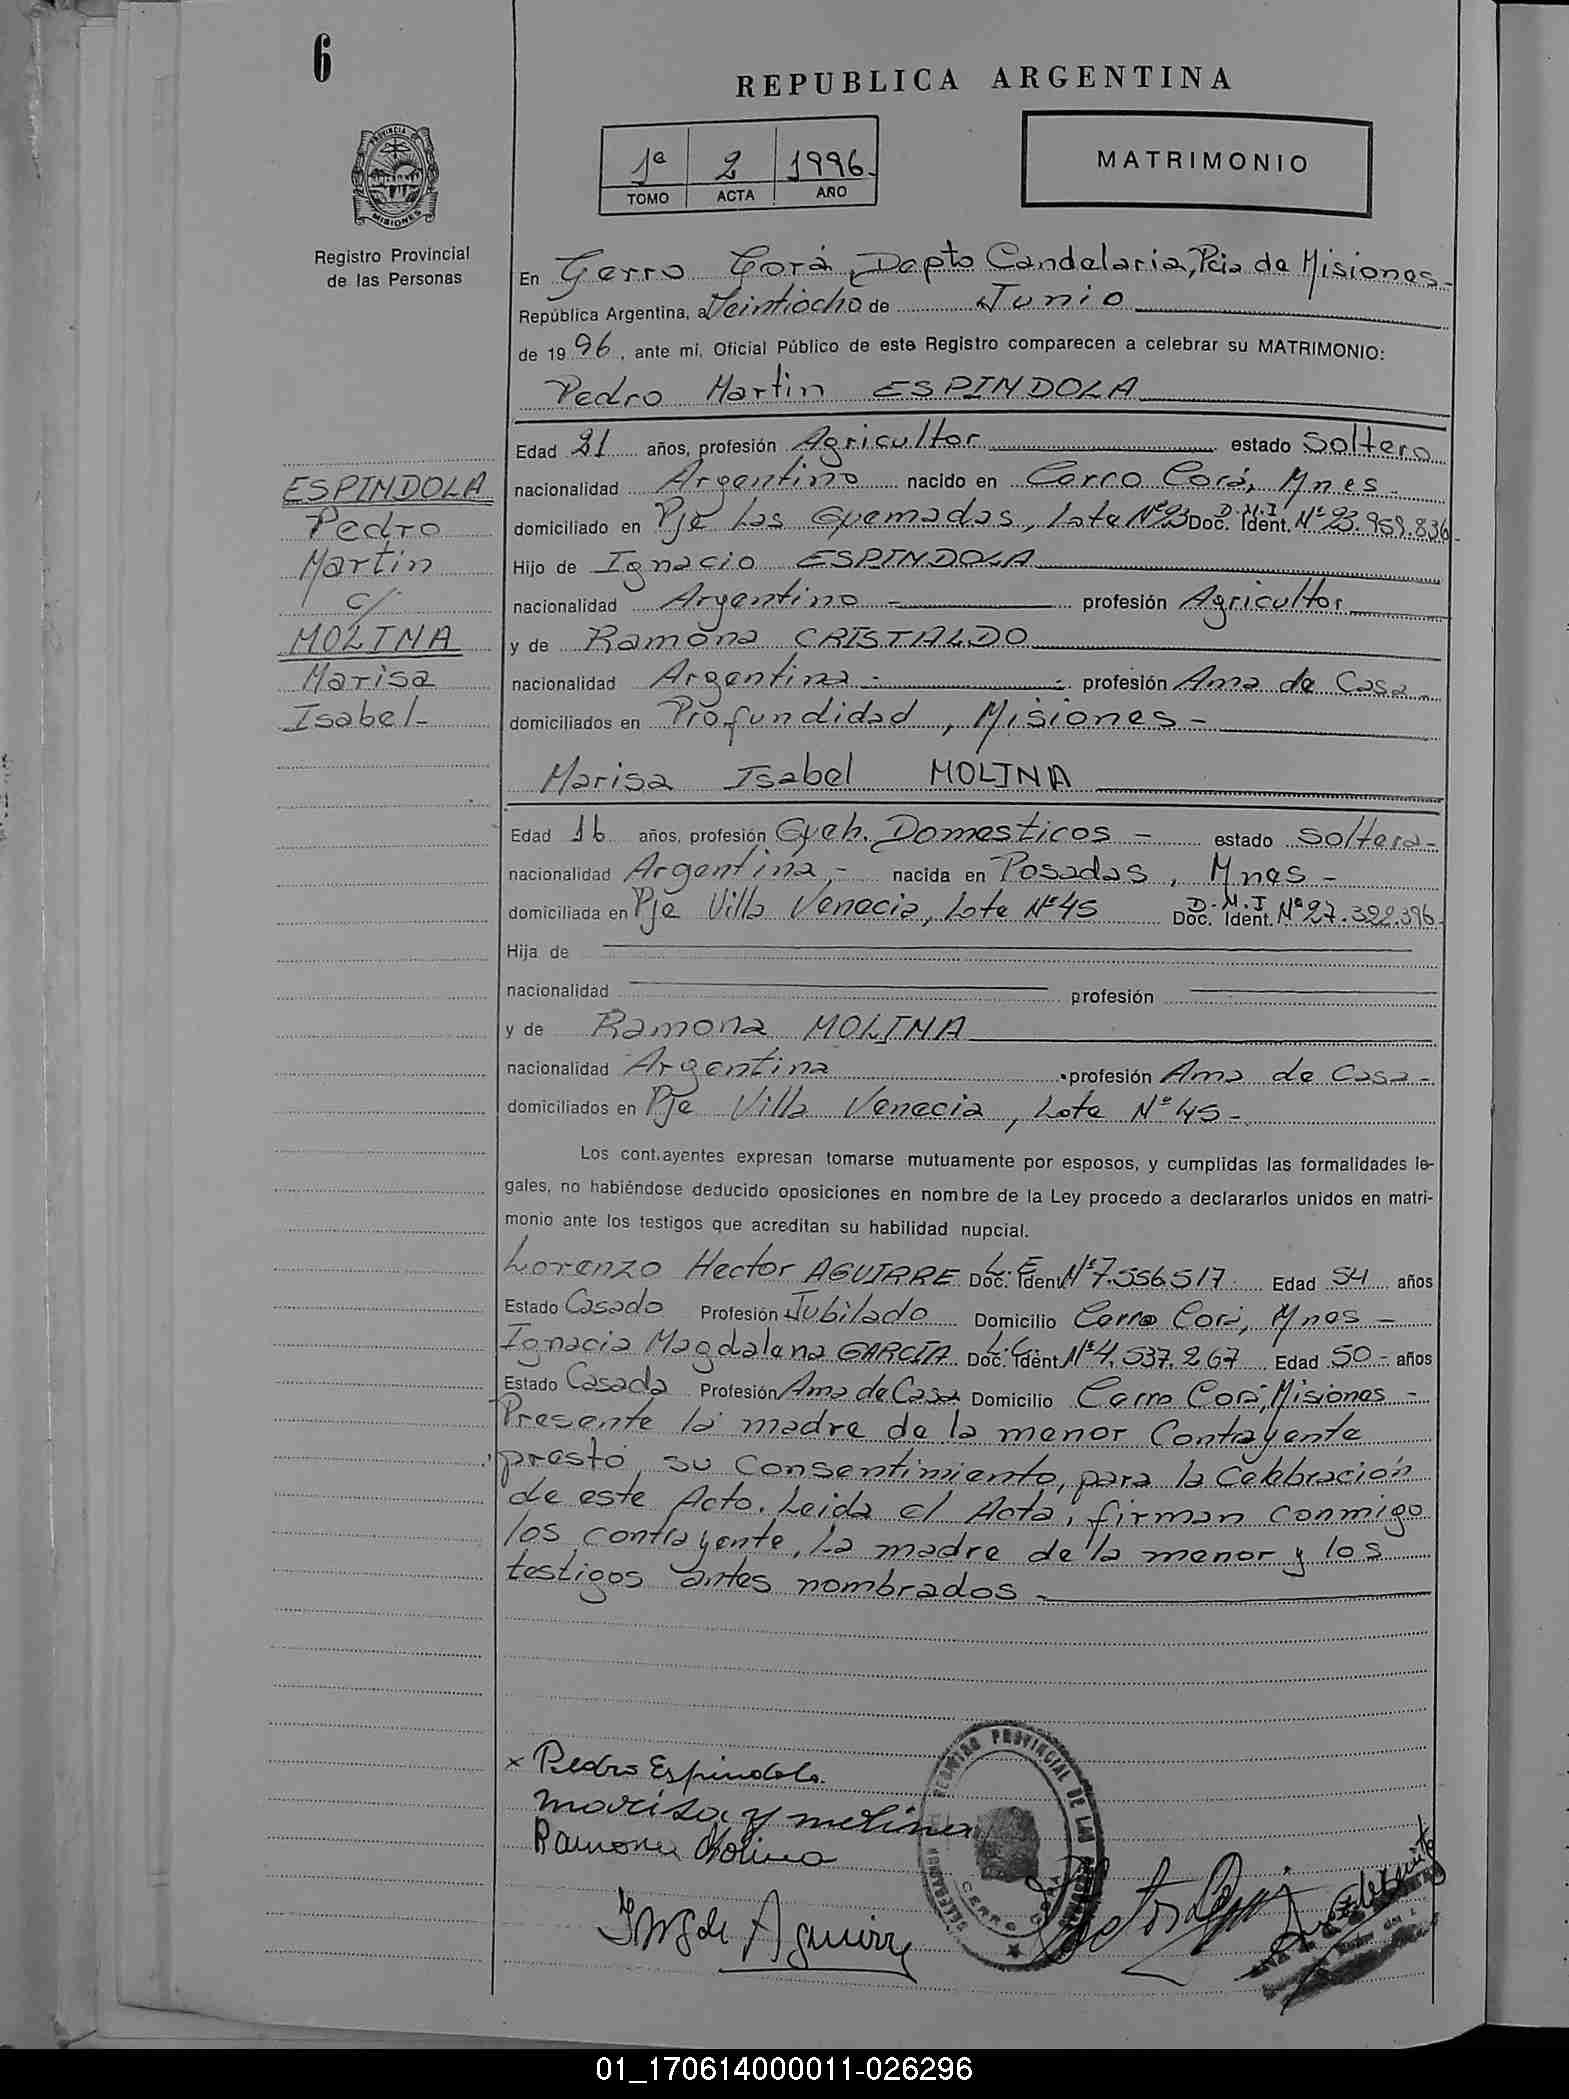 6
REPUBLICA ARGENTINA
1ª 2 1996.
TOMO ACTA AÑO
MATRIMONIO
PROVINCIA DE
MISIONES
Registro Provincial
de las Personas
En Cerro Corá, Depto Candelaria, Pcia de Misiones-
República Argentina, a Veintiocho de Junio
de 1996, ante mi, Oficial Público de este Registro comparecen a celebrar su MATRIMONIO:
Pedro Martin ESPINDOLA
Edad 21 años, profesión Agricultor estado Soltero
nacionalidad Argentino nacido en Cerro Corá, Mnes-
domiciliado en Pje Las Quemadas, Lote Nº23 D.M.I Doc. Ident. Nº23.959.836-
Hijo de Ignacio ESPINDOLA
nacionalidad Argentino - profesión Agricultor
y de Ramona CRISTALDO
nacionalidad Argentina - profesión Ama de Casa-
domiciliados en Profundidad, Misiones-
ESPINDOLA
Pedro
Martin
c/
MOLINA
Marisa
Isabel-
Marisa Isabel MOLINA
Edad 16 años, profesión Queh. Domesticos - estado Soltera-
nacionalidad Argentina,- nacida en Posadas, Mnes-
domiciliada en Pje Villa Venecia, Lote Nº45 D.M.I Doc. Ident. Nº27.322.396-
Hija de
nacionalidad profesión
y de Ramona MOLINA
nacionalidad Argentina profesión Ama de Casa-
domiciliados en Pje Villa Venecia, Lote Nº45-
Los contrayentes expresan tomarse mutuamente por esposos, y cumplidas las formalidades le-
gales, no habiéndose deducido oposiciones en nombre de la Ley procedo a declararlos unidos en matri-
monio ante los testigos que acreditan su habilidad nupcial.
Lorenzo Hector AGUIRRE L.E Doc. Ident. Nº7.556.517 Edad 54 años
Estado Casado Profesión Jubilado Domicilio Cerro Corá, Mnes-
Ignacia Magdalena GARCÍA L.C. Doc. Ident. Nº4.537.267 Edad 50- años
Estado Casada Profesión Ama de Casa Domicilio Cerro Corá, Misiones-
Presente la madre de la menor Contrayente
prestó su consentimiento, para la Celebración
de este Acto. Leida el Acta, firman conmigo
los contrayente, La madre de la menor y los
testigos antes nombrados-
x Pedro Espindola.
marisa y molina
Ramona Molina
REGISTRO PROVINCIAL DE LAS PERSONAS
DELEGACION
CERRO CORA
Aguirre
01_170614000011-026296